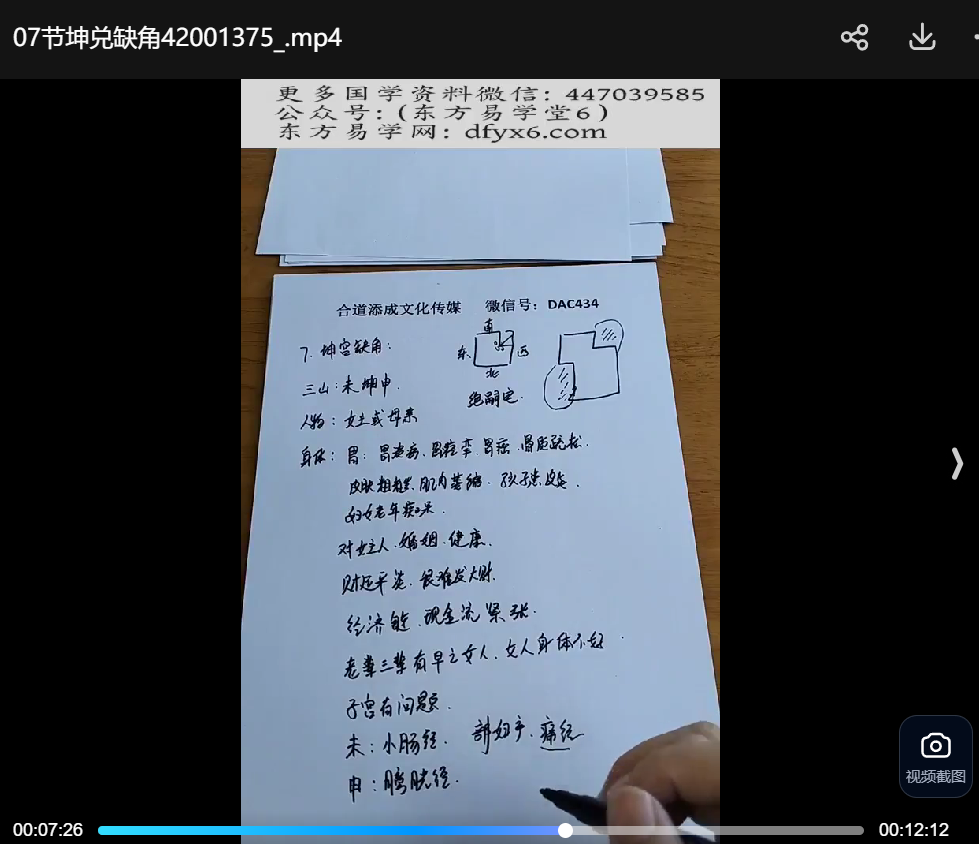 07节坤兑缺角42001375_.mp4
更多国学资料微信：447039585
公众号：（东方易学堂6）
东方易学网：dfyx6.com
合道添成文化传媒 微信号：DAC434
7. 坤宫缺角：
东 西
北
三山：未坤申.
绝嗣宅.
人物：女主或母亲
身体：胃：胃溃疡、胃痉挛 胃癌
皮肤粗糙、肌内萎缩.
妇女老年痴呆.
对女主人、婚姻、健康、
财运平淡、很难发大财.
经济 现金流紧张.
老辈三辈有早亡女人、女人身体不好
子宫有问题.
未：小肠经. 部妇于、痛经
申：膀胱经.
视频截图
00:07:26
00:12:12